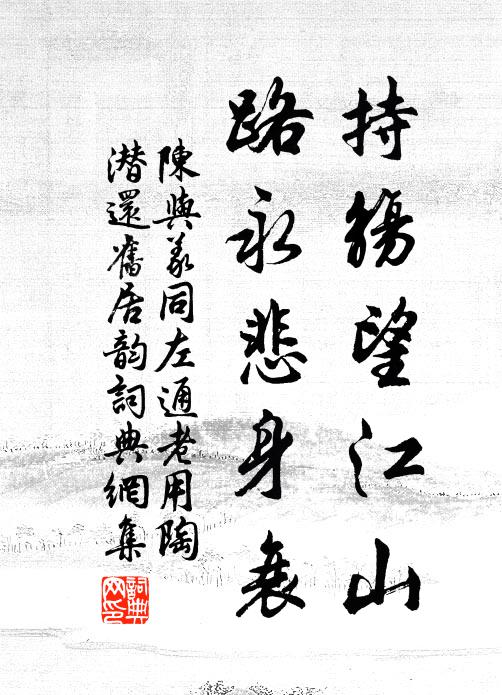 持觴望江山
路永悲身衰
陳與義同左通老用陶
潛還舊居韵詞典網集
詞典网印